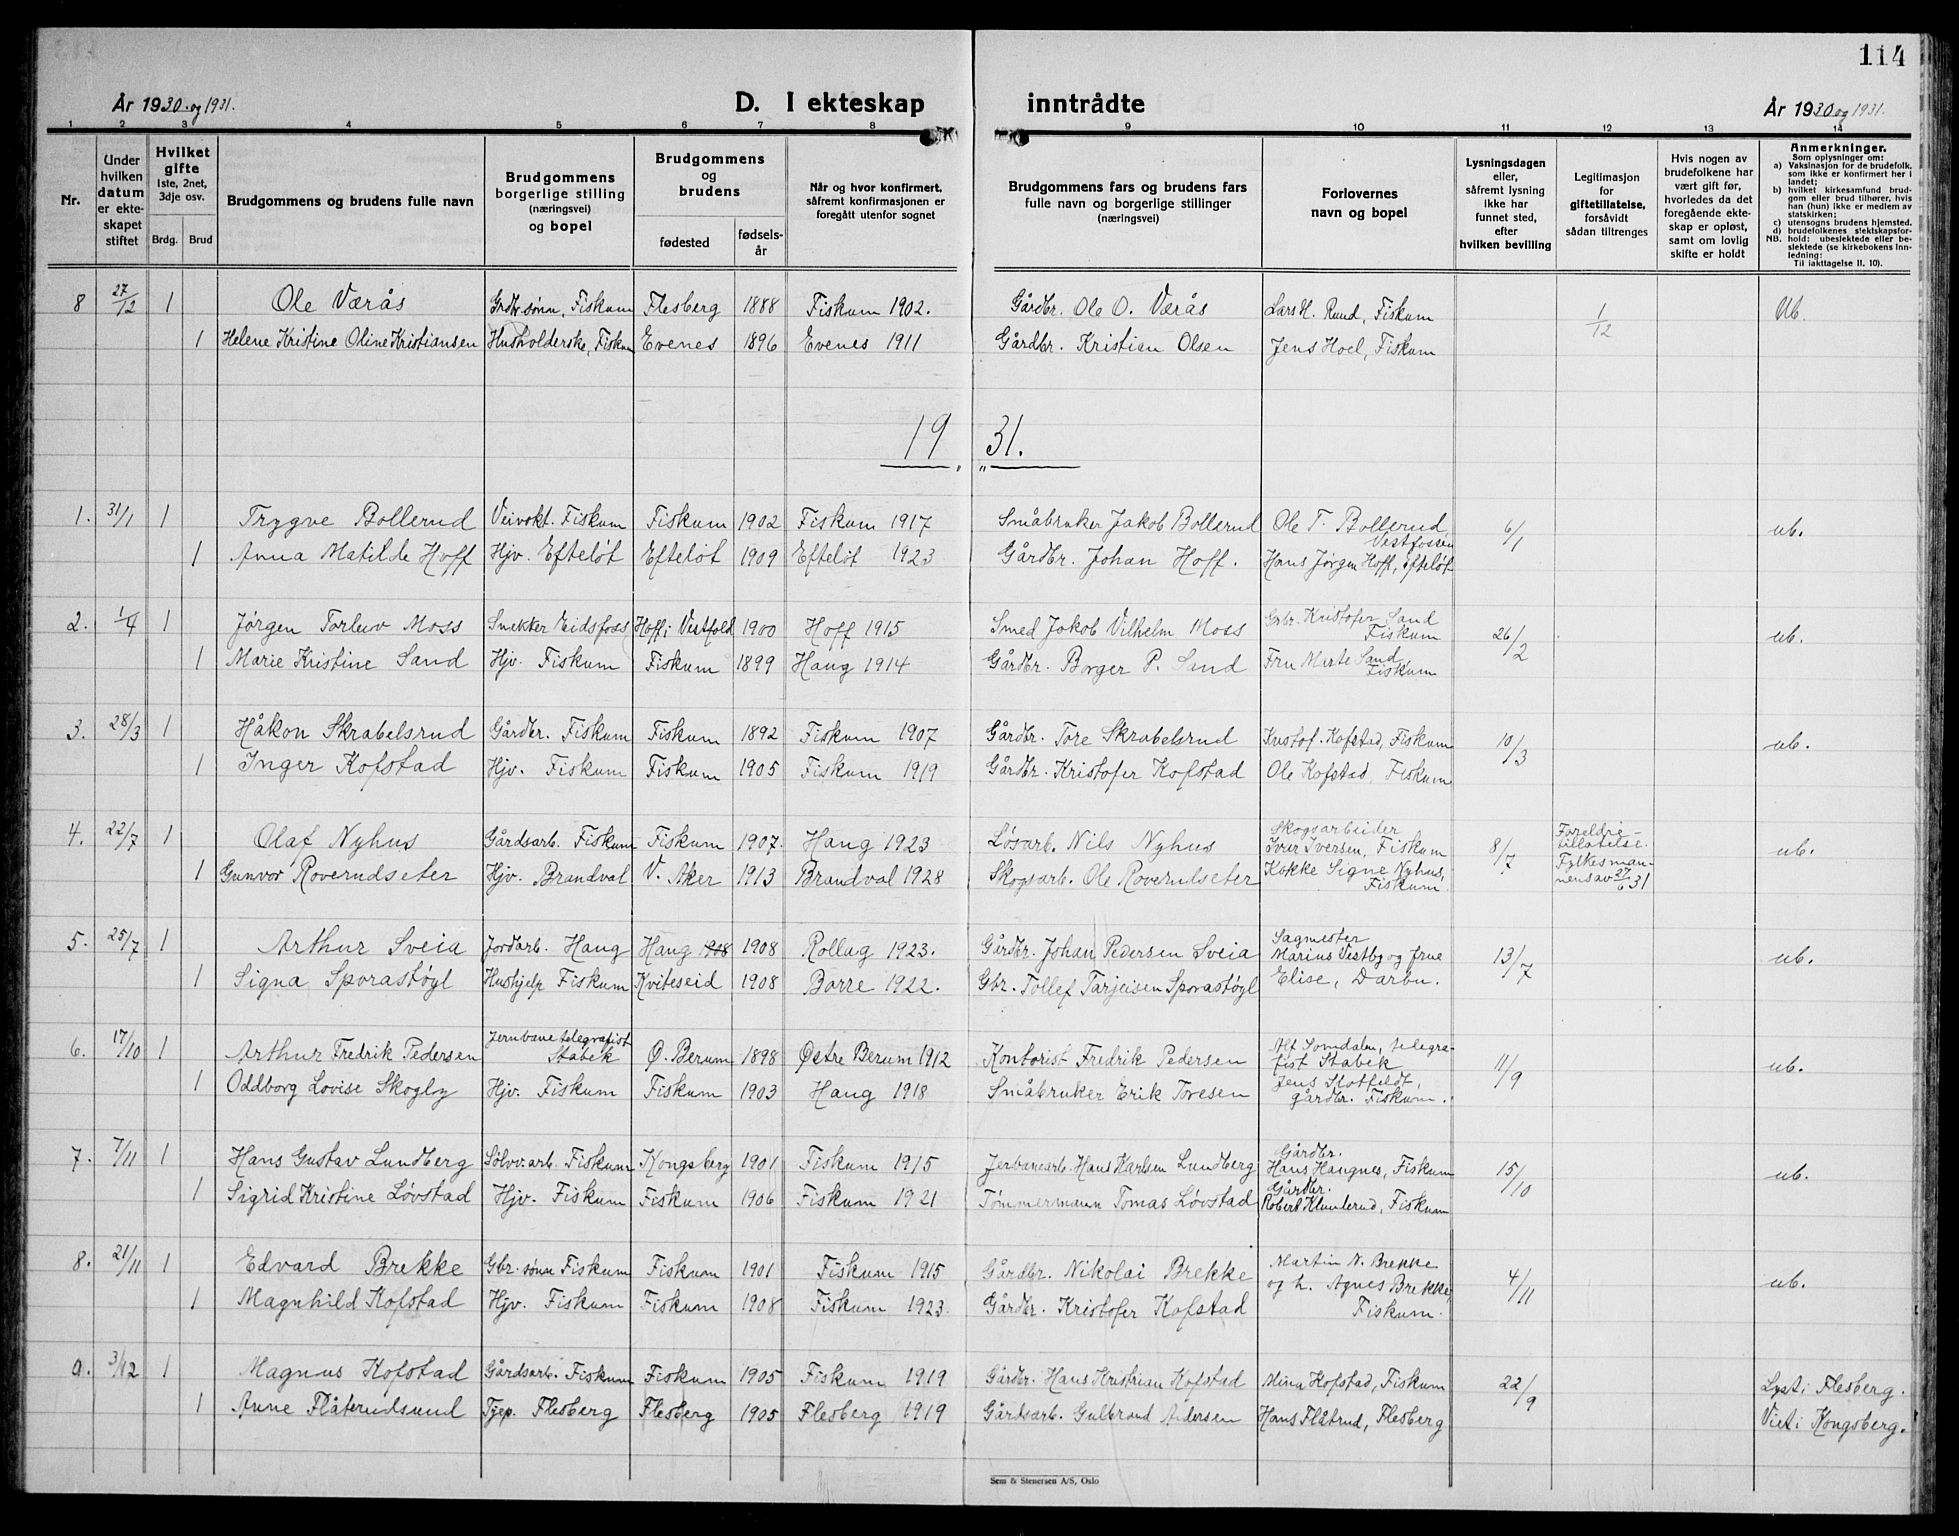 114
År 1930 og 1931. D. I ekteskap inntrådte År 1930 og 1931.
1 2 3 4 5 6 7 8 9 10 11 12 13 14
Nr.
Under hvilken datum er ekteskapet stiftet
Hvilket gifte
1ste, 2net, 3dje osv.
Brdg. Brud
Brudgommens og brudens fulle navn
Brudgommens borgerlige stilling (næringsvei) og bopel
Brudgommens og brudens
fødested
fødselsår
Når og hvor konfirmert, såfremt konfirmasjonen er foregått utenfor sognet
Brudgommens fars og brudens fars fulle navn og borgerlige stillinger (næringsvei)
Forlovernes navn og bopel
Lysningsdagen eller, såfremt lysning ikke har funnet sted, efter hvilken bevilling
Legitimasjon for giftetillatelse, forsåvidt sådan tiltrenges
Hvis nogen av brudefolkene har vært gift før, hvorledes da det foregående ekteskap er opløst, samt om lovlig skifte er holdt
Anmerkninger.
Som oplysninger om:
a) Vaksinasjon for de brudefolk, som ikke er konfirmert her i landet;
b) hvilket kirkesamfund brudgom eller brud tilhører, hvis han (hun) ikke er medlem av statskirken;
c) utensogns brudens hjemsted.
d) brudefolkenes slektskapsforhold: ubeslektede eller beslektede (se kirkebokens Innledning:
NB. Til iakttagelse II. 10).
8 27/12 1 Ole Værås Grdbr.sønn, Fiskum Flesberg 1888 Fiskum 1902. Gårdbr. Ole O. Værås Lars H. Ruud, Fiskum 1/12 Ub.
1 Helene Kristine Oline Kristiansen Husholderske, Fiskum Evenes 1896 Evenes 1911 Gårdbr. Kristian Olsen Jens Hoel, Fiskum
19 31.
1. 31/1 1 Trygve Bollerud Veivokt. Fiskum Fiskum 1902 Fiskum 1917 Småbruker Jakob Bollerud Ole T. Bollerud Vestfossen 6/1 ub.
1 Anna Matilde Hoff Hjv. Efteløt Efteløt 1909 Efteløt 1923 Gårdbr. Johan Hoff. Hans Jørgen Hoff, Efteløt
2. 1/4 1 Jørgen Torleiv Moss Snekker Eidsfoss Hoff i Vestfold 1900 Hoff 1915 Smed Jakob Vilhelm Moss Grbr. Kristofer Sand Fiskum 26/2 ub.
1 Marie Kristine Sand Hjv. Fiskum Fiskum 1899 Haug 1914 Gårdbr. Borger P. Sand Fru Marte Sand, Fiskum
3. 28/3 1 Håkon Skrabelsrud Gårdbr. Fiskum Fiskum 1892 Fiskum 1907 Gårdbr. Tore Skrabelsrud Kristof. Kofstad, Fiskum 10/3 ub.
1 Inger Kofstad Hjv. Fiskum Fiskum 1905 Fiskum 1919 Gårdbr. Kristofer Kofstad Ole Kofstad, Fiskum
4. 22/7 1 Olaf Nyhus Gårdsarb. Fiskum Fiskum 1907 Haug 1923 Løsarb. Nils Nyhus Skogsarbeider Iver Iversen, Fiskum 8/7 Foreldretillatelse. Fylkesmannens av 27/6 31 ub.
1 Gunvor Roverudseter Hjv. Brandval V. Aker 1913 Brandval 1928 Skogsarb. Ole Roverudseter Kokke Signe Nyhus, Fiskum
5. 25/7 1 Arthur Sveia Jordarb. Haug Haug 1908 1908 Rollag 1923. Gårdbr. Johan Pedersen Sveia Sagmester Marius Vestby og frue 13/7 ub.
1 Signa Sporastøyl Hushjelp Fiskum Kviteseid 1908 Borre 1922. Gbr. Tollef Tarjeisen Sporastøyl Elise, Darbu.
6. 17/10 1 Arthur Fredrik Pedersen Jernbanetelegrafist Stabek Ø. Berum 1898 Østre Berum 1912 Kontorist Fredrik Pedersen Alf Somdalen, telegrafist Stabek 11/9 ub.
1 Oddborg Lovise Skogly Hjv. Fiskum Fiskum 1903 Haug 1918 Småbruker Erik Toresen Jens Stotfeldt, gårdbr. Fiskum.
7. 7/11 1 Hans Gustav Lundberg Sølvv.arb. Fiskum Kongsberg 1901 Fiskum 1915 Jerbanearb. Hans Karlsen Lundberg Gårdbr. Hans Haugnes, Fiskum 15/10 ub.
1 Sigrid Kristine Løvstad Hjv. Fiskum Fiskum 1906 Fiskum 1921 Tømmermann Tomas Løvstad Gårdbr. Robert Klunderud, Fiskum
8. 21/11 1 Edvard Brekke Gbr.sønn Fiskum Fiskum 1901 Fiskum 1915 Gårdbr. Nikolai Brekke Martin N. Brekke 4/11 ub.
1 Magnhild Kofstad Hjv. Fiskum Fiskum 1908 Fiskum 1923. Gårdbr. Kristofer Kofstad og h. Agnes Brekke, Fiskum.
9. 3/12 1 Magnus Kofstad Gårdsarb. Fiskum Fiskum 1905 Fiskum 1919 Gårdbr. Hans Kristian Kofstad Mina Kofstad, Fiskum 22/9 Lyst i Flesberg.
1 Anne Flåterudsund Tjep. Flesberg Flesberg 1905 Flesberg 1919 Gårdsarb. Gulbrand Andersen Hans Flåtrud, Flesberg Viet i Kongsberg.
Sem & Stenersen A/S, Oslo